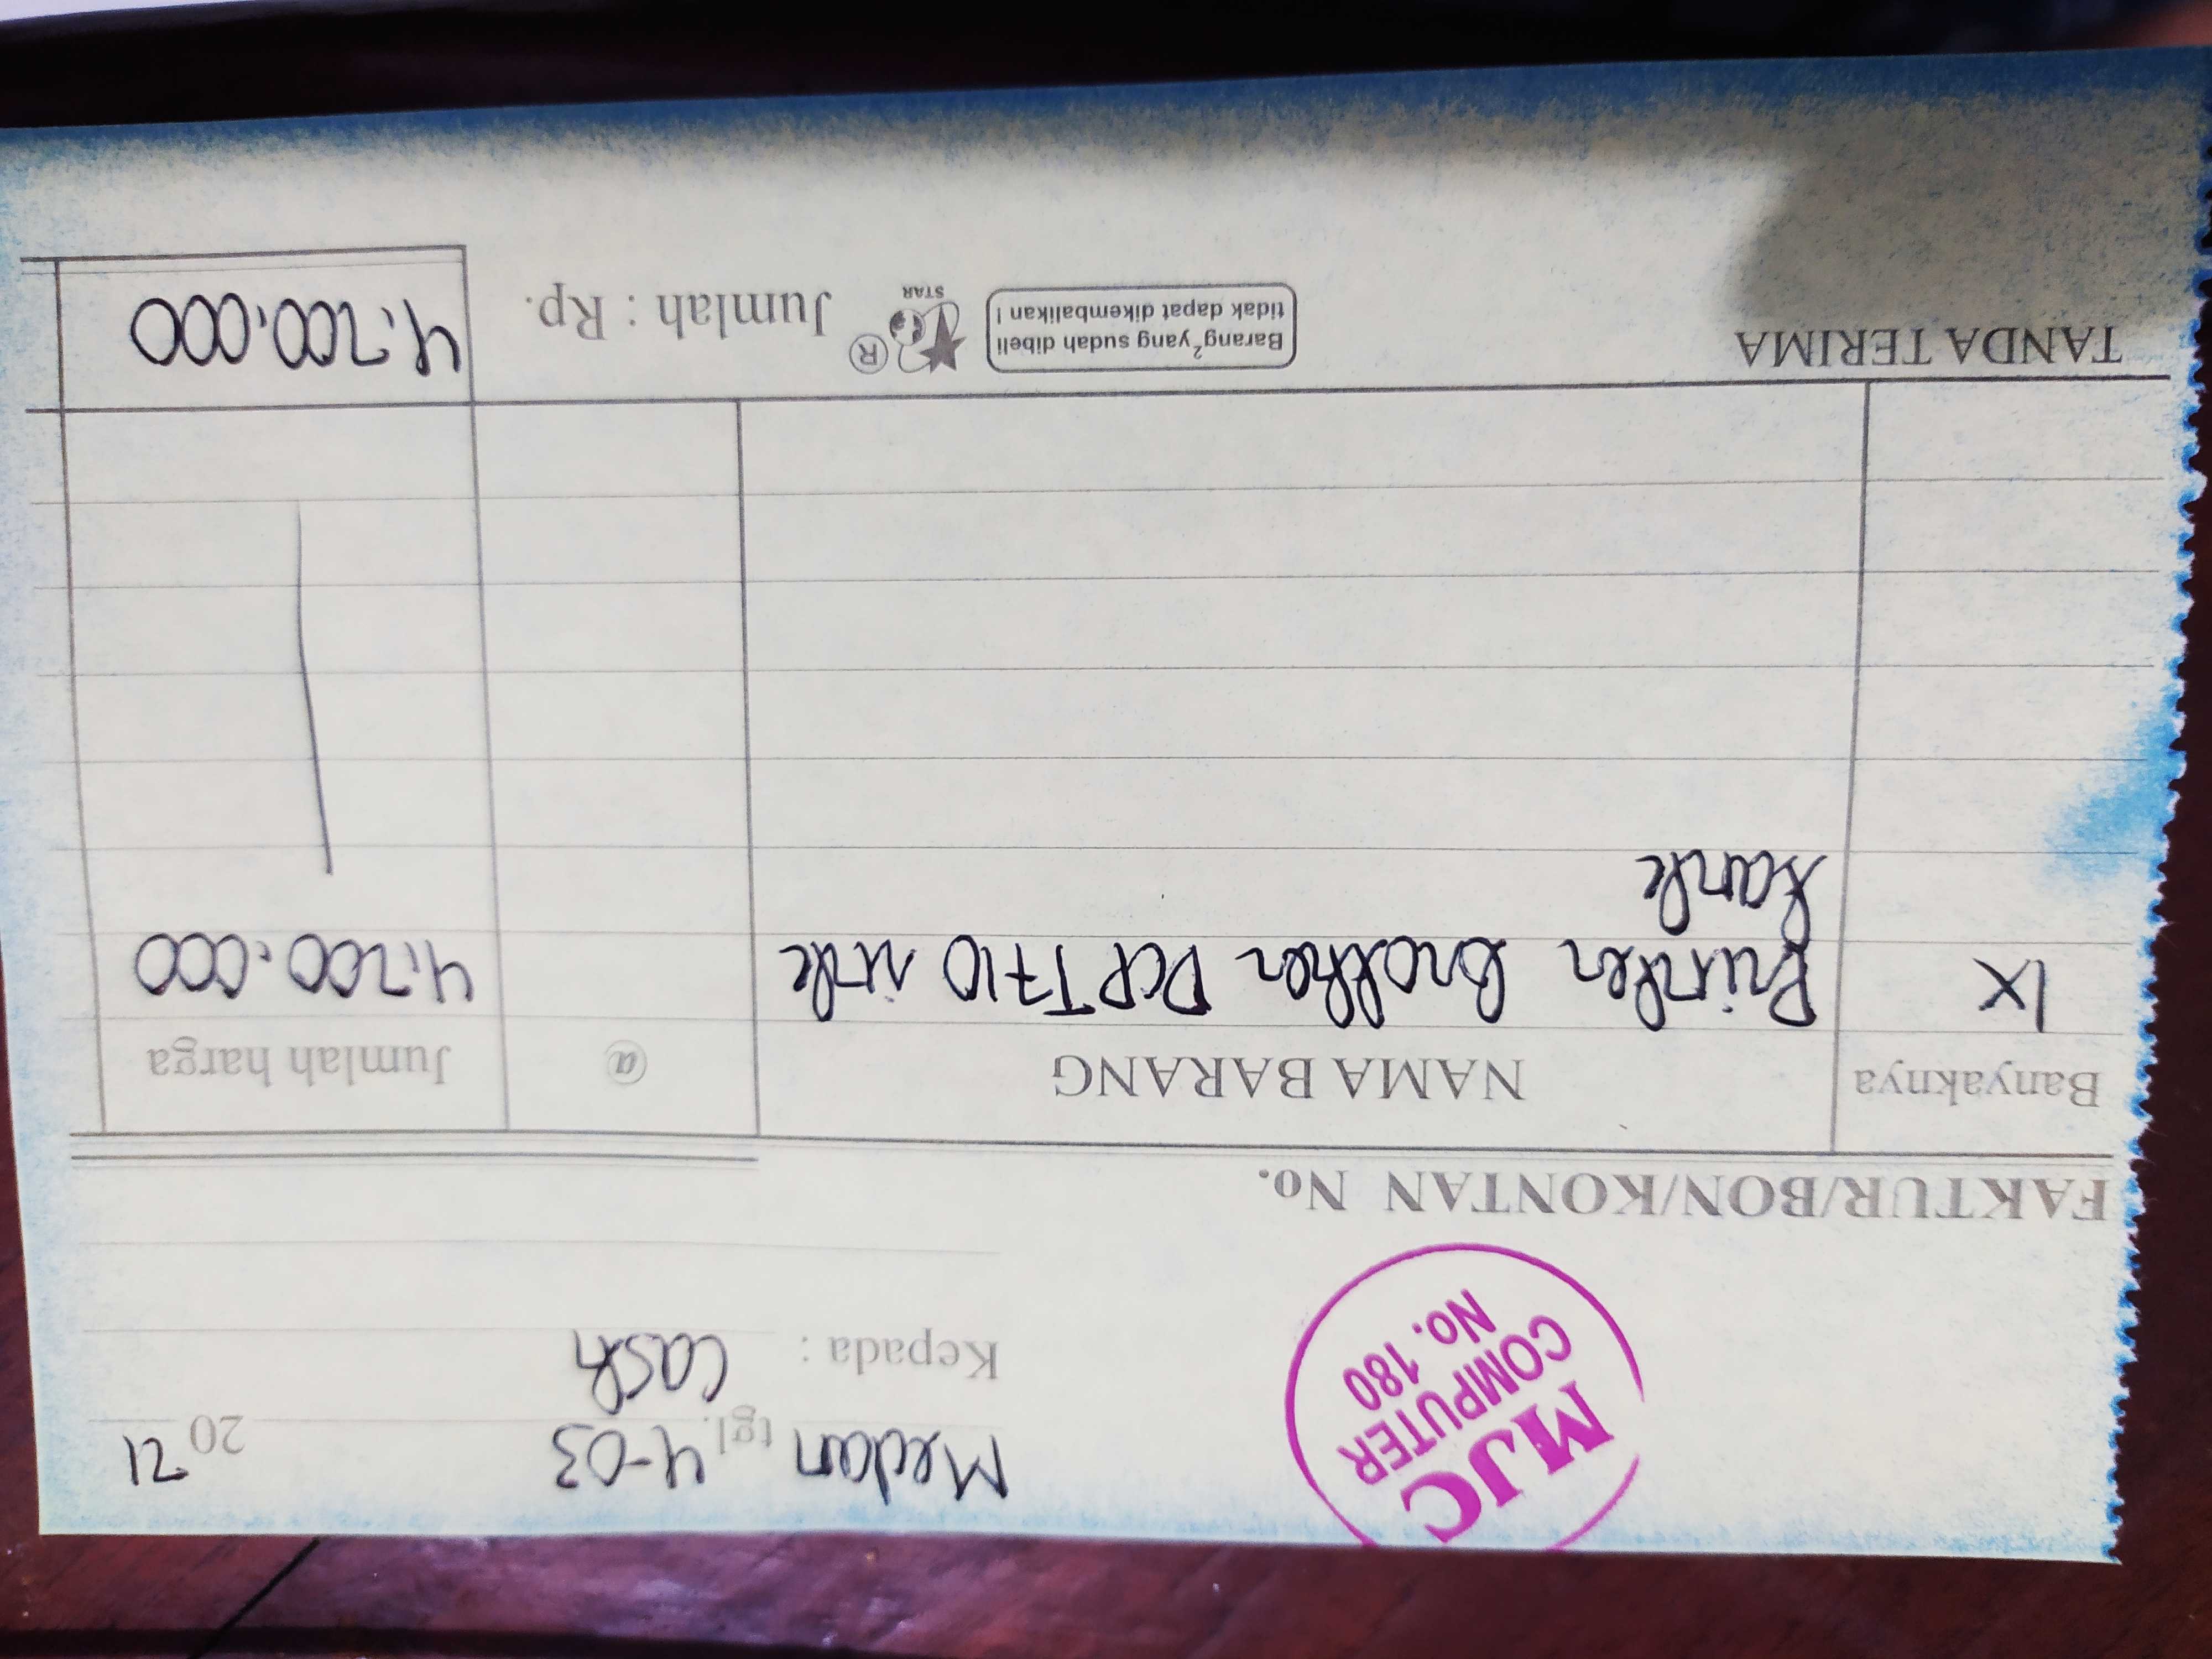 MJC
COMPUTER
No. 180
Medan tgl. 4-03 2021
Kepada : Cash
FAKTUR/BON/KONTAN No.
Banyaknya NAMA BARANG @ Jumlah harga
1X Printer Brother DCP T710 ink 4.200.000
tank
TANDA TERIMA
Barang² yang sudah dibeli
tidak dapat dikembalikan !
® STAR
Jumlah : Rp. 4.200.000